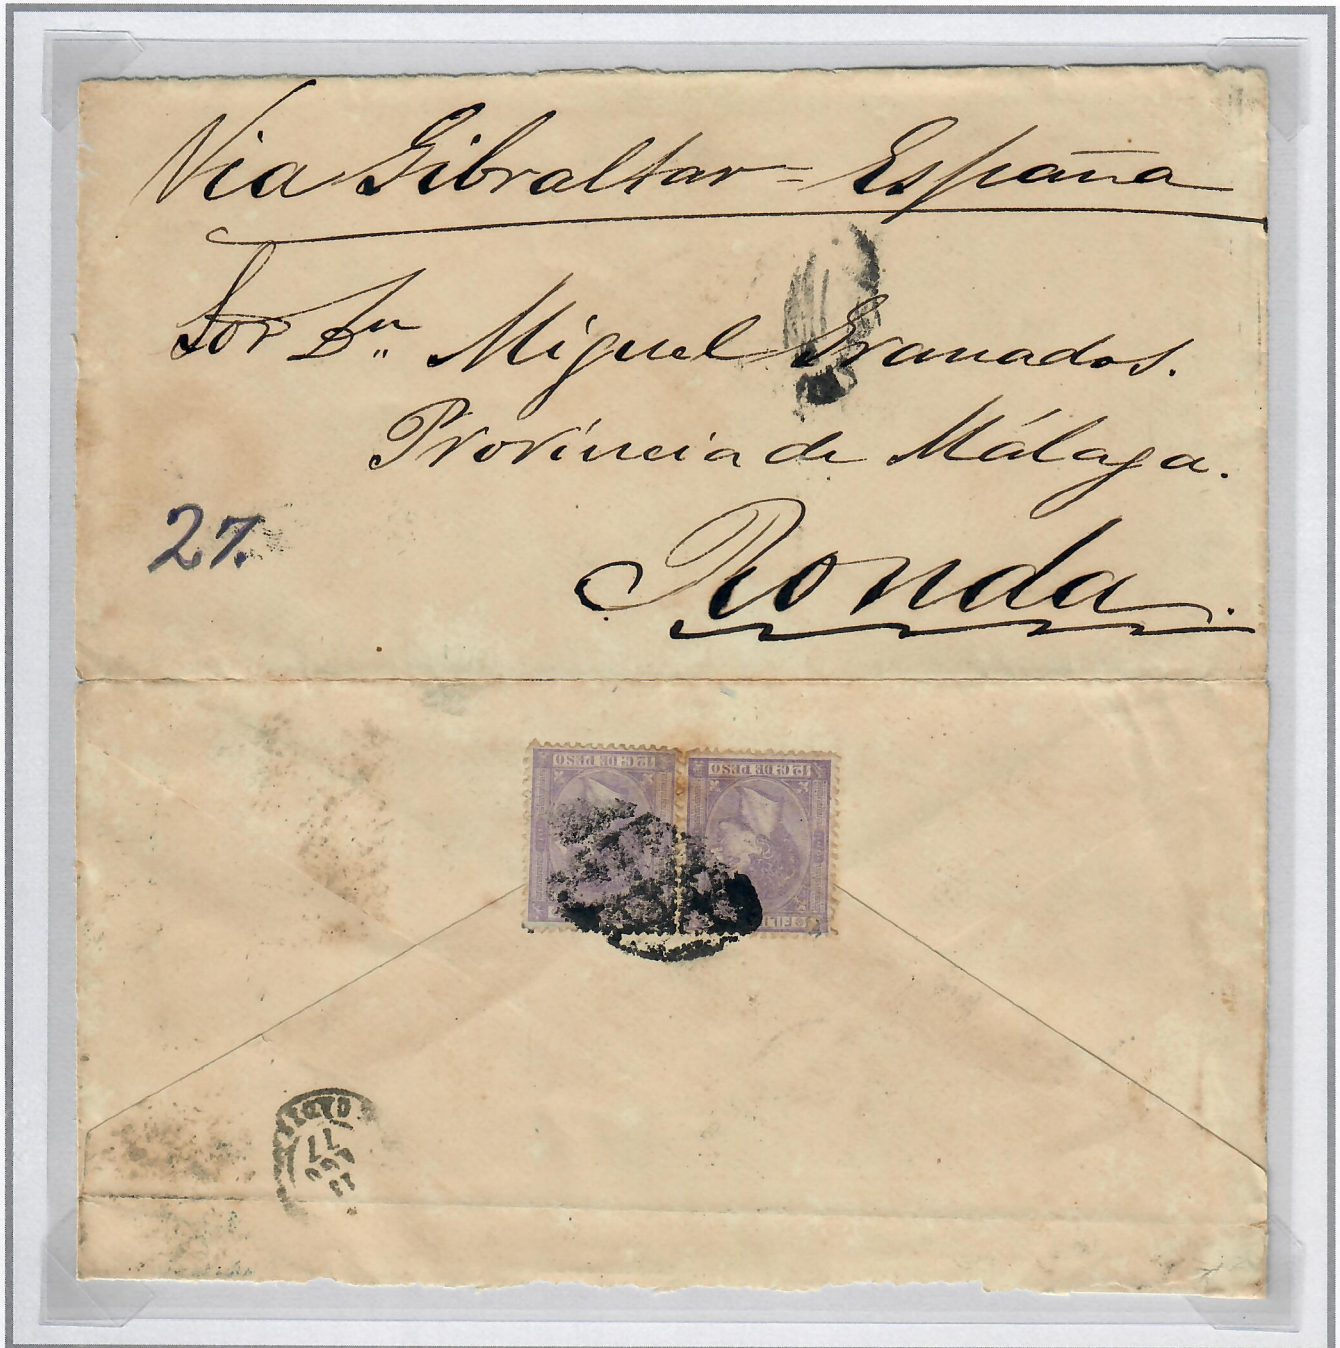 Via Gibraltar = España
Sor Dn Miguel Granados.
Provincia de Málaga.
27.
Ronda.
12 CS DE PESO
12 CS DE PESO
FILI
13
AGO
77